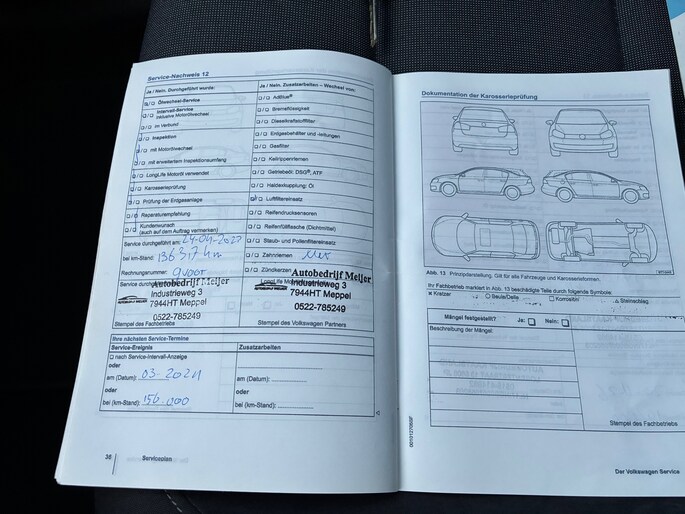 Service-Nachweis 12
Ja / Nein. Durchgeführt wurde:
Ölwechsel-Service
Intervall-Service
inklusive Motorölwechsel
im Verbund
Inspektion
mit Motorölwechsel
mit erweitertem Inspektionsumfang
LongLife Motoröl verwendet
Karosserieprüfung
Prüfung der Erdgasanlage
Reparaturempfehlung
Kundenwunsch
(auch auf dem Auftrag vermerken)
Service durchgeführt am:
bei km-Stand:
Rechnungsnummer:
Service durch
Autobedrijf Meijer
Industrieweg 3
7944HT Meppel
0522-785249
Stempel des Fachbetriebs
Ja / Nein. Zusatzarbeiten – Wechsel von:
AdBlue®
Bremsflüssigkeit
Dieselkraftstofffilter
Erdgasbehälter und -leitungen
Gasfilter
Keilrippenriemen
Getriebeöl: DSG®, ATF
Haldexkupplung: Öl
Luftfiltereinsatz
Reifendrucksensoren
Reifenfüllflasche (Dichtmittel)
Staub- und Pollenfiltereinsatz
Zahnriemen
Zündkerzen
Autobedrijf Meijer
LongLife
Industrieweg 3
7944HT Meppel
0522-785249
Stempel des Volkswagen Partners
Ihre nächsten Service-Termine
Service-Ereignis
nach Service-Intervall-Anzeige
oder
am (Datum):
oder
bei (km-Stand): 150.000
Zusatzarbeiten
am (Datum):
oder
bei (km-Stand):
36
Serviceplan
Dokumentation der Karosserieprüfung
Abb. 13 Prinzipdarstellung. Gilt für alle Fahrzeuge und Karosserieformen.
Ihr Fachbetrieb markiert in Abb. 13 beschädigte Teile durch folgende Symbole:
Kratzer
Beule/Delle
Korrosion
Steinschlag
Mängel festgestellt?
Ja:
Nein:
Beschreibung der Mängel:
Stempel des Fachbetriebs
Der Volkswagen Service